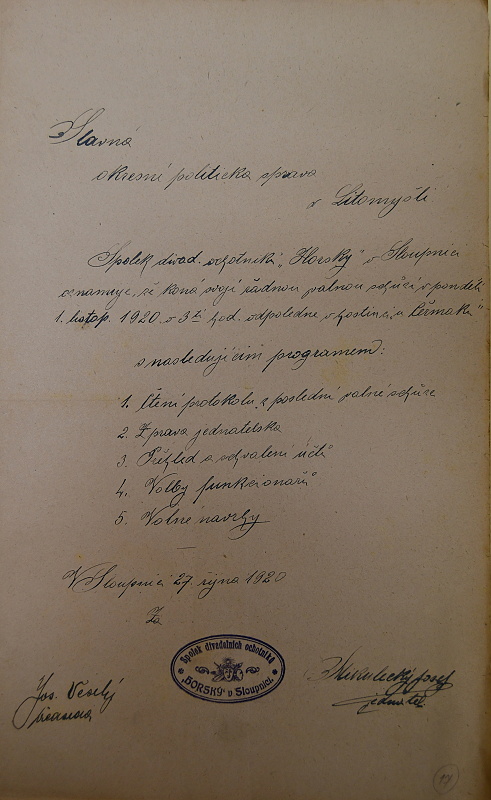 Slavná
okresní politická správa
v Litomyšli
Spolek divad. ochotníků „Horský" v Sloupnici
oznamuje, že koná svojí řádnou valnou schůzi v pondělí
1. listop. 1920 v 3 hod. odpoledne v hostinci u Čermáků
s následujícím programem:
1. Čtení protokolu z poslední valné schůze
2. Zpráva jednatelská
3. Přehled a schválení účtů
4. Volby funkcionářů
5. Volné návrhy
V Sloupnici 27. října 1920
Za
Spolek divadelních ochotníků
„HORSKÝ" v Sloupnici.
Jos. Veselý
Josef
jednatel